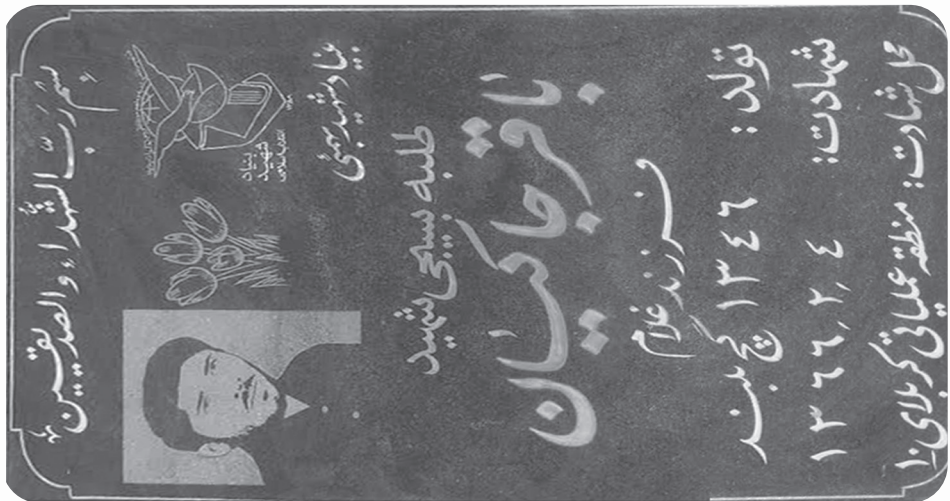 بسم رب الشهداء و الصدیقین
بنیاد
شهید
انقلاب اسلامی
بنیاد شهید بهمئی
طلبه بسیجی شهید
باقر جاکیان
فرزند غلام
تولد: ۱۳۴۶ گچ بلند
شهادت: ۱۳۶۶٫۲٫۴
محل شهادت: منطقه عملیاتی کربلای ۱۰